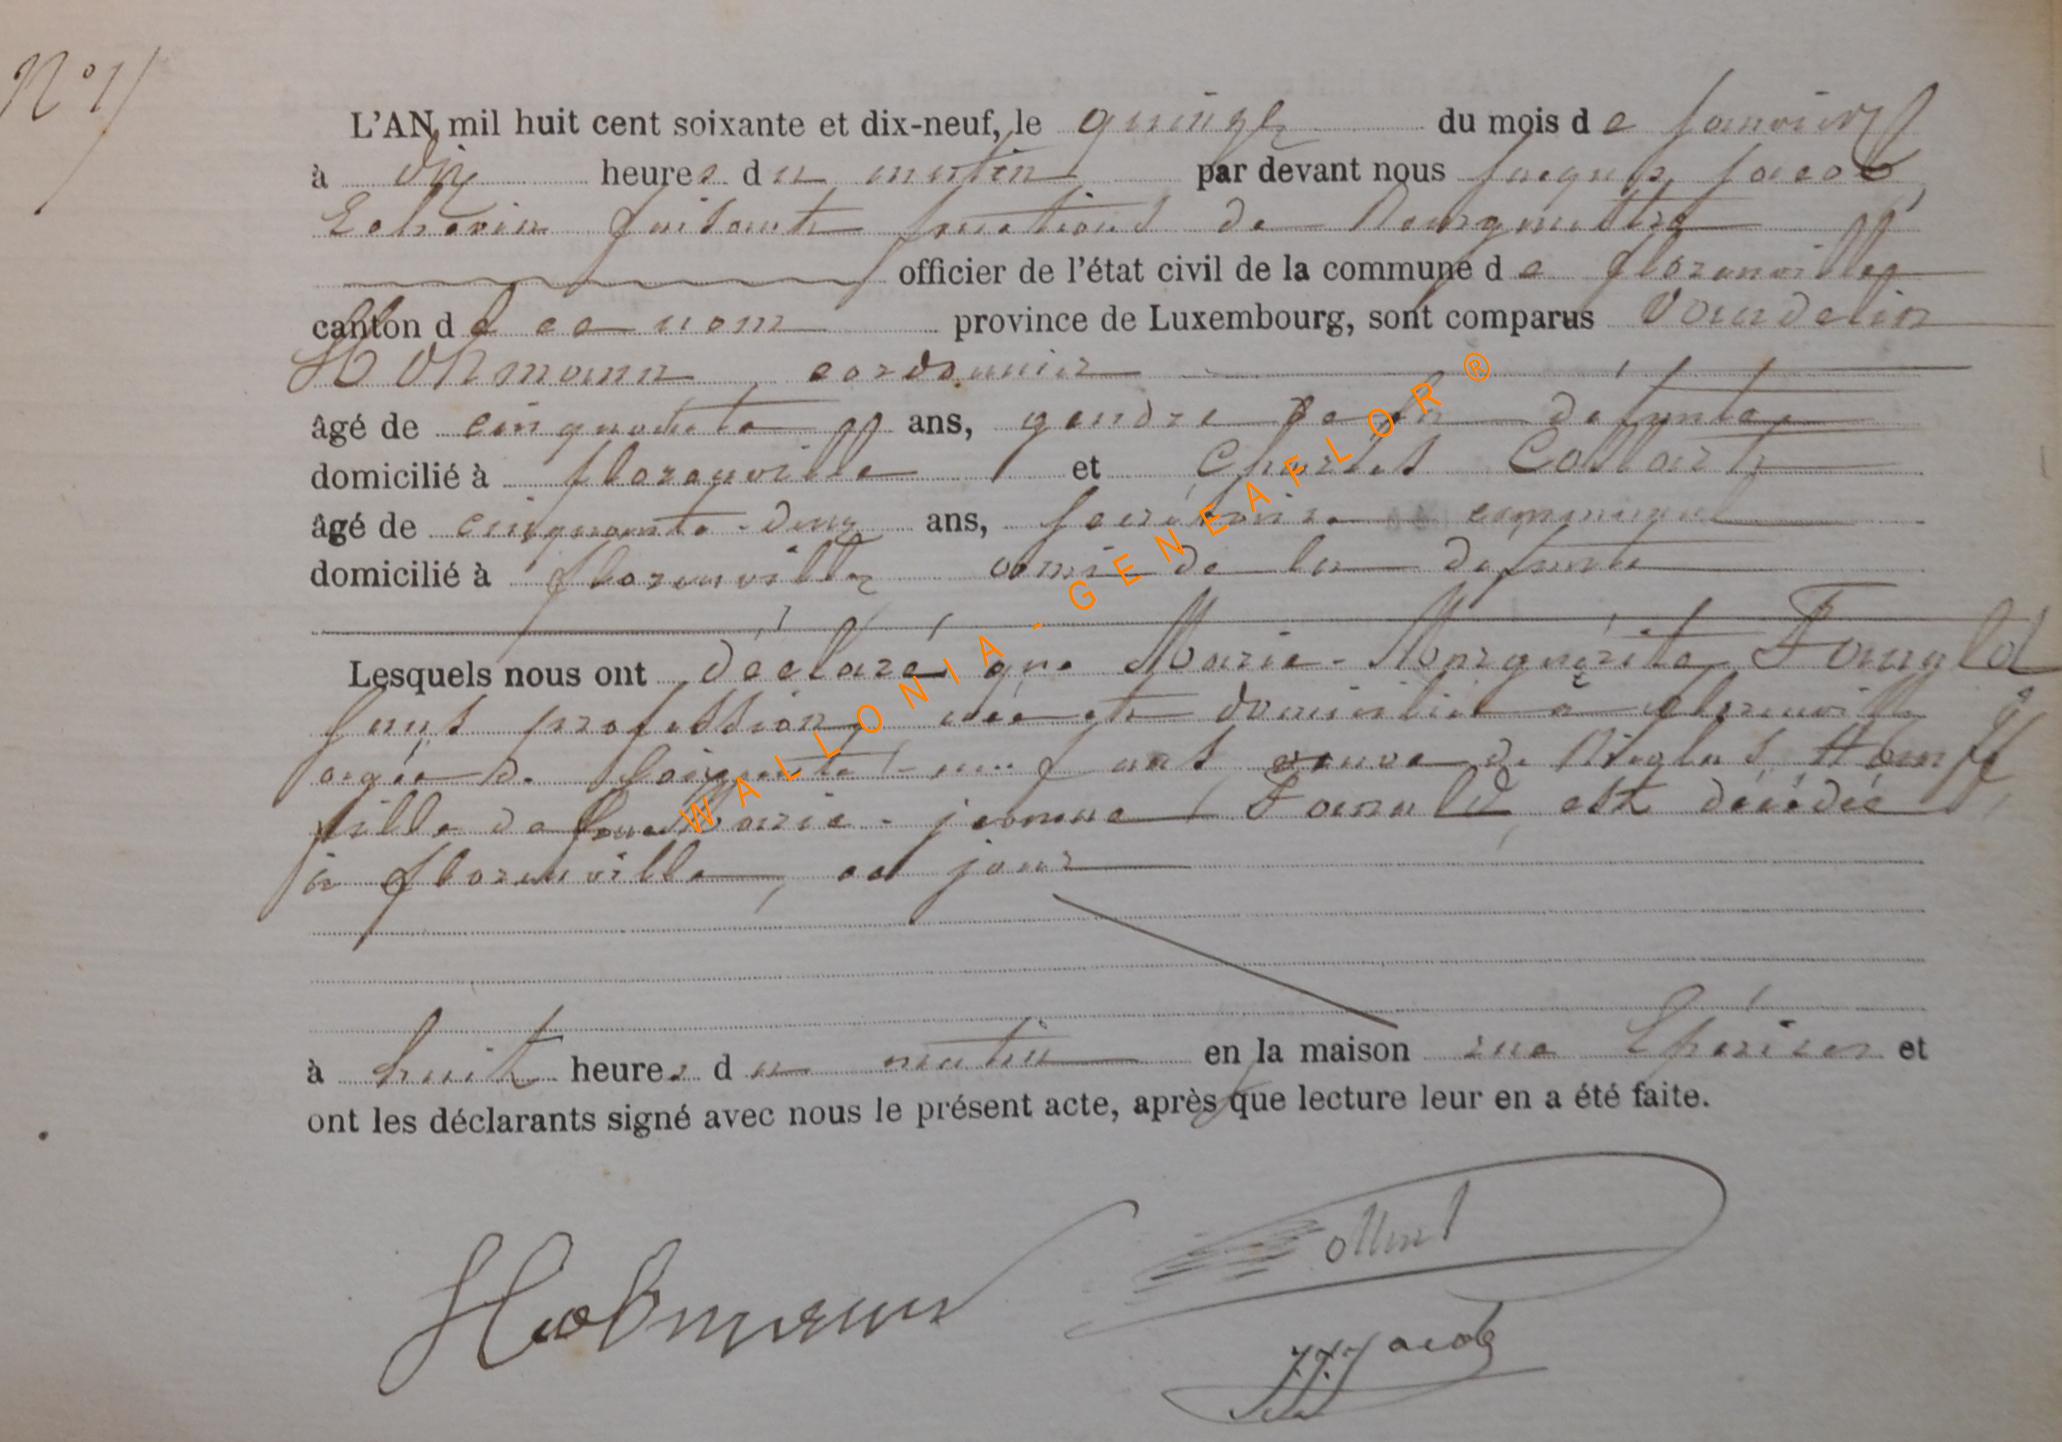 N° 1
L'AN mil huit cent soixante et dix-neuf, le quinze du mois de Janvier
à dix heures du matin par devant nous Jacques Jacob
Echevin faisant fonctions de Bourgmestre
officier de l'état civil de la commune de florenville
canton de ce nom province de Luxembourg, sont comparus Vandelin
cordonnier
âgé de cinquante ans, gendre de la défunte
domicilié à florenville et Charles Collart
âgé de cinquante-deux ans, secrétaire communal
domicilié à florenville ami de la défunte
Lesquels nous ont déclaré que Marie-Marguérite
sans profession, domiciliée à florenville
agée de ans veuve de
fille de feue Marie-jeanne est décédée
à florenville, ce jour
à huit heures du matin en la maison rue et
ont les déclarants signé avec nous le présent acte, après que lecture leur en a été faite.
Collart
J.J. Jacob
WALLONIA-GENEAFLOR ®